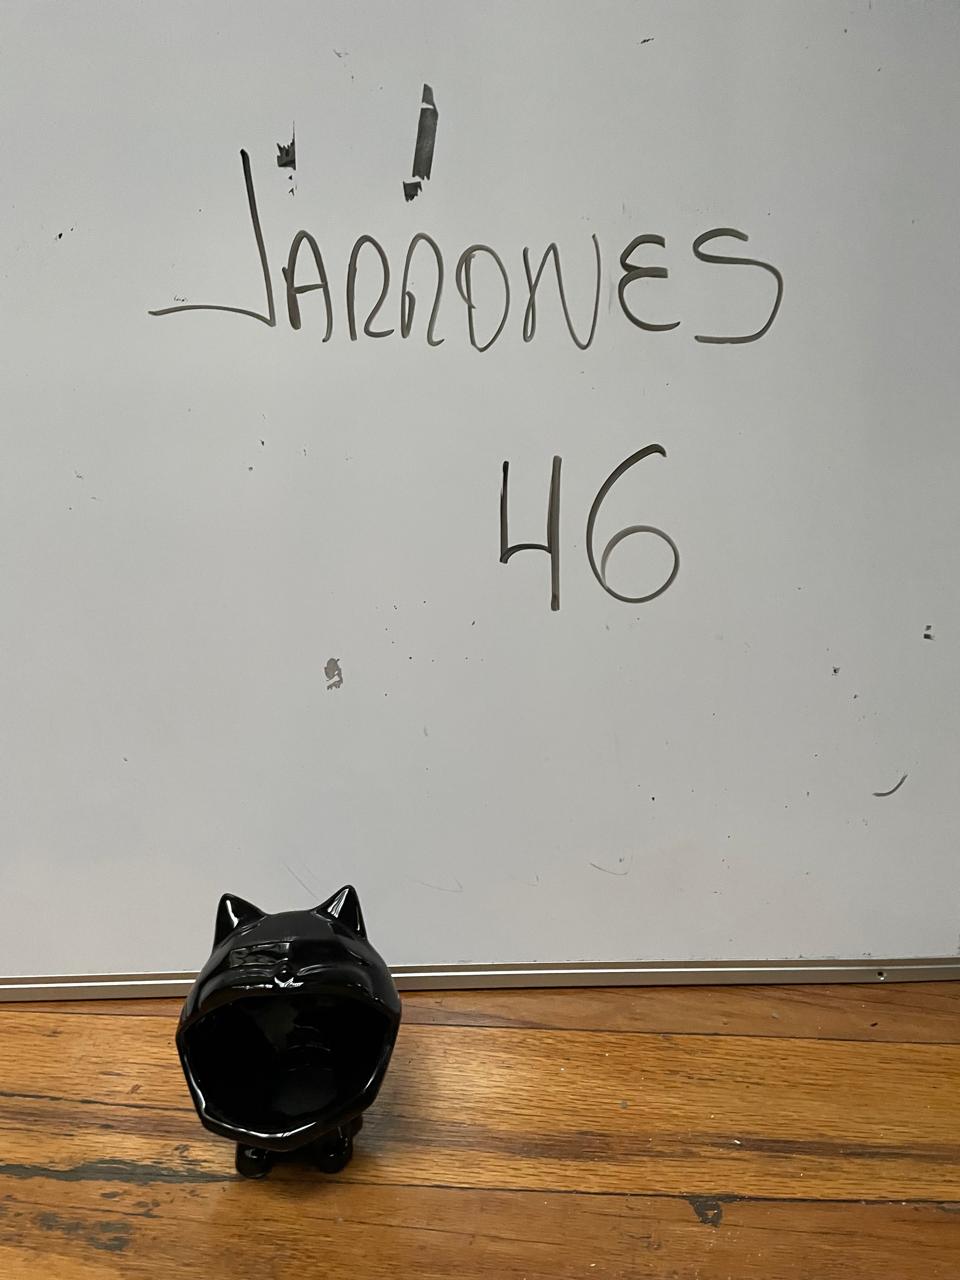 JARRONES
46